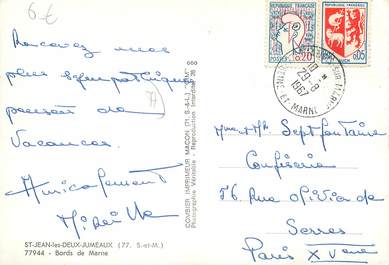 6€
Recevez nos
plus sympathiques
pensées de
Vacances.
Amicalement
Mireille
ST-JEAN-les-DEUX-JUMEAUX (77. S.-et-M.)
77944 - Bords de Marne
COMBIER IMPRIMEUR MACON (71. S.-&-L.)
Photographie Véritable - Reproduction Interdite
REPUBLIQUE FRANCAISE
POSTES 0,20
0,05
29-8
1967
SEINE-ET-MARNE
Mme et Mr Septfontaine
Confiserie
56 Rue Olivier de
Serres
Paris XVeme